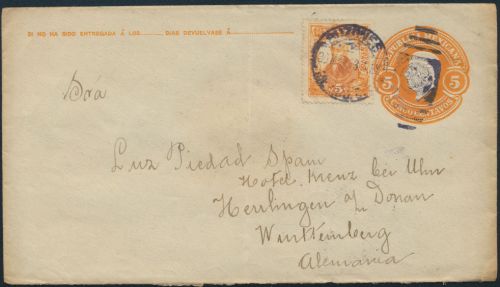 SI NO HA SIDO ENTREGADA Á LOS DIAS DEVUELVASE Á
MEXICANA
5 5
CENTAVOS
Srá
Luz Piedad Spam
Hotel Menz bei Ulm
Herrlingen a/ Donau
Württemberg
Alemania